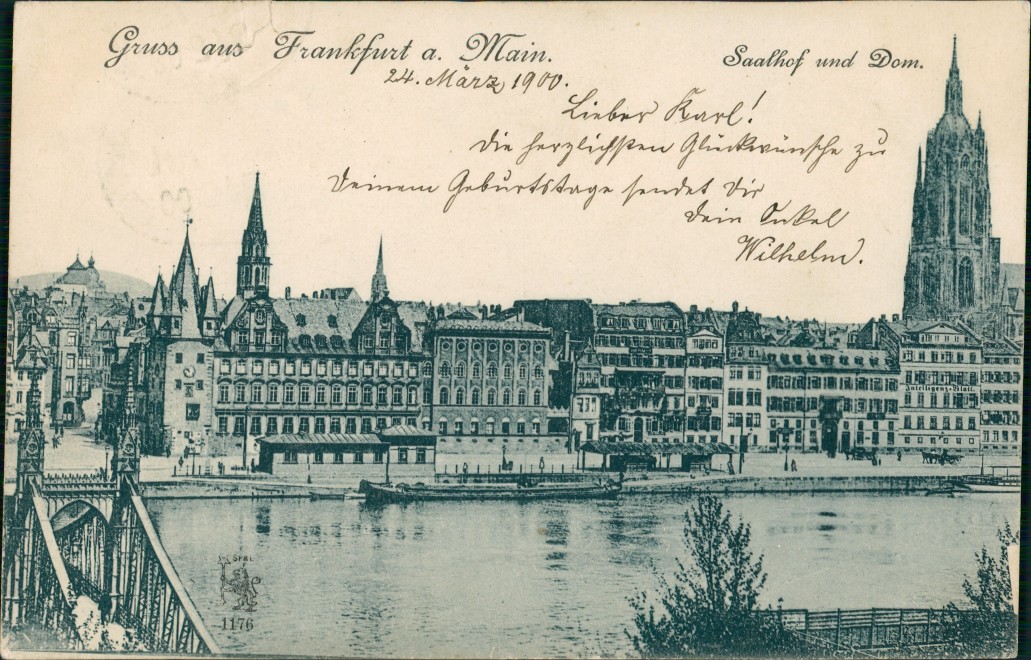 Gruss aus Frankfurt a. Main.
Saalhof und Dom.
24. März 1900.
Lieber Karl!
Die herzlichsten Glückwünsche zu
Deinem Geburtstage sendet Dir
Dein Onkel
Wilhelm.
Intelligenz-Blatt
1176